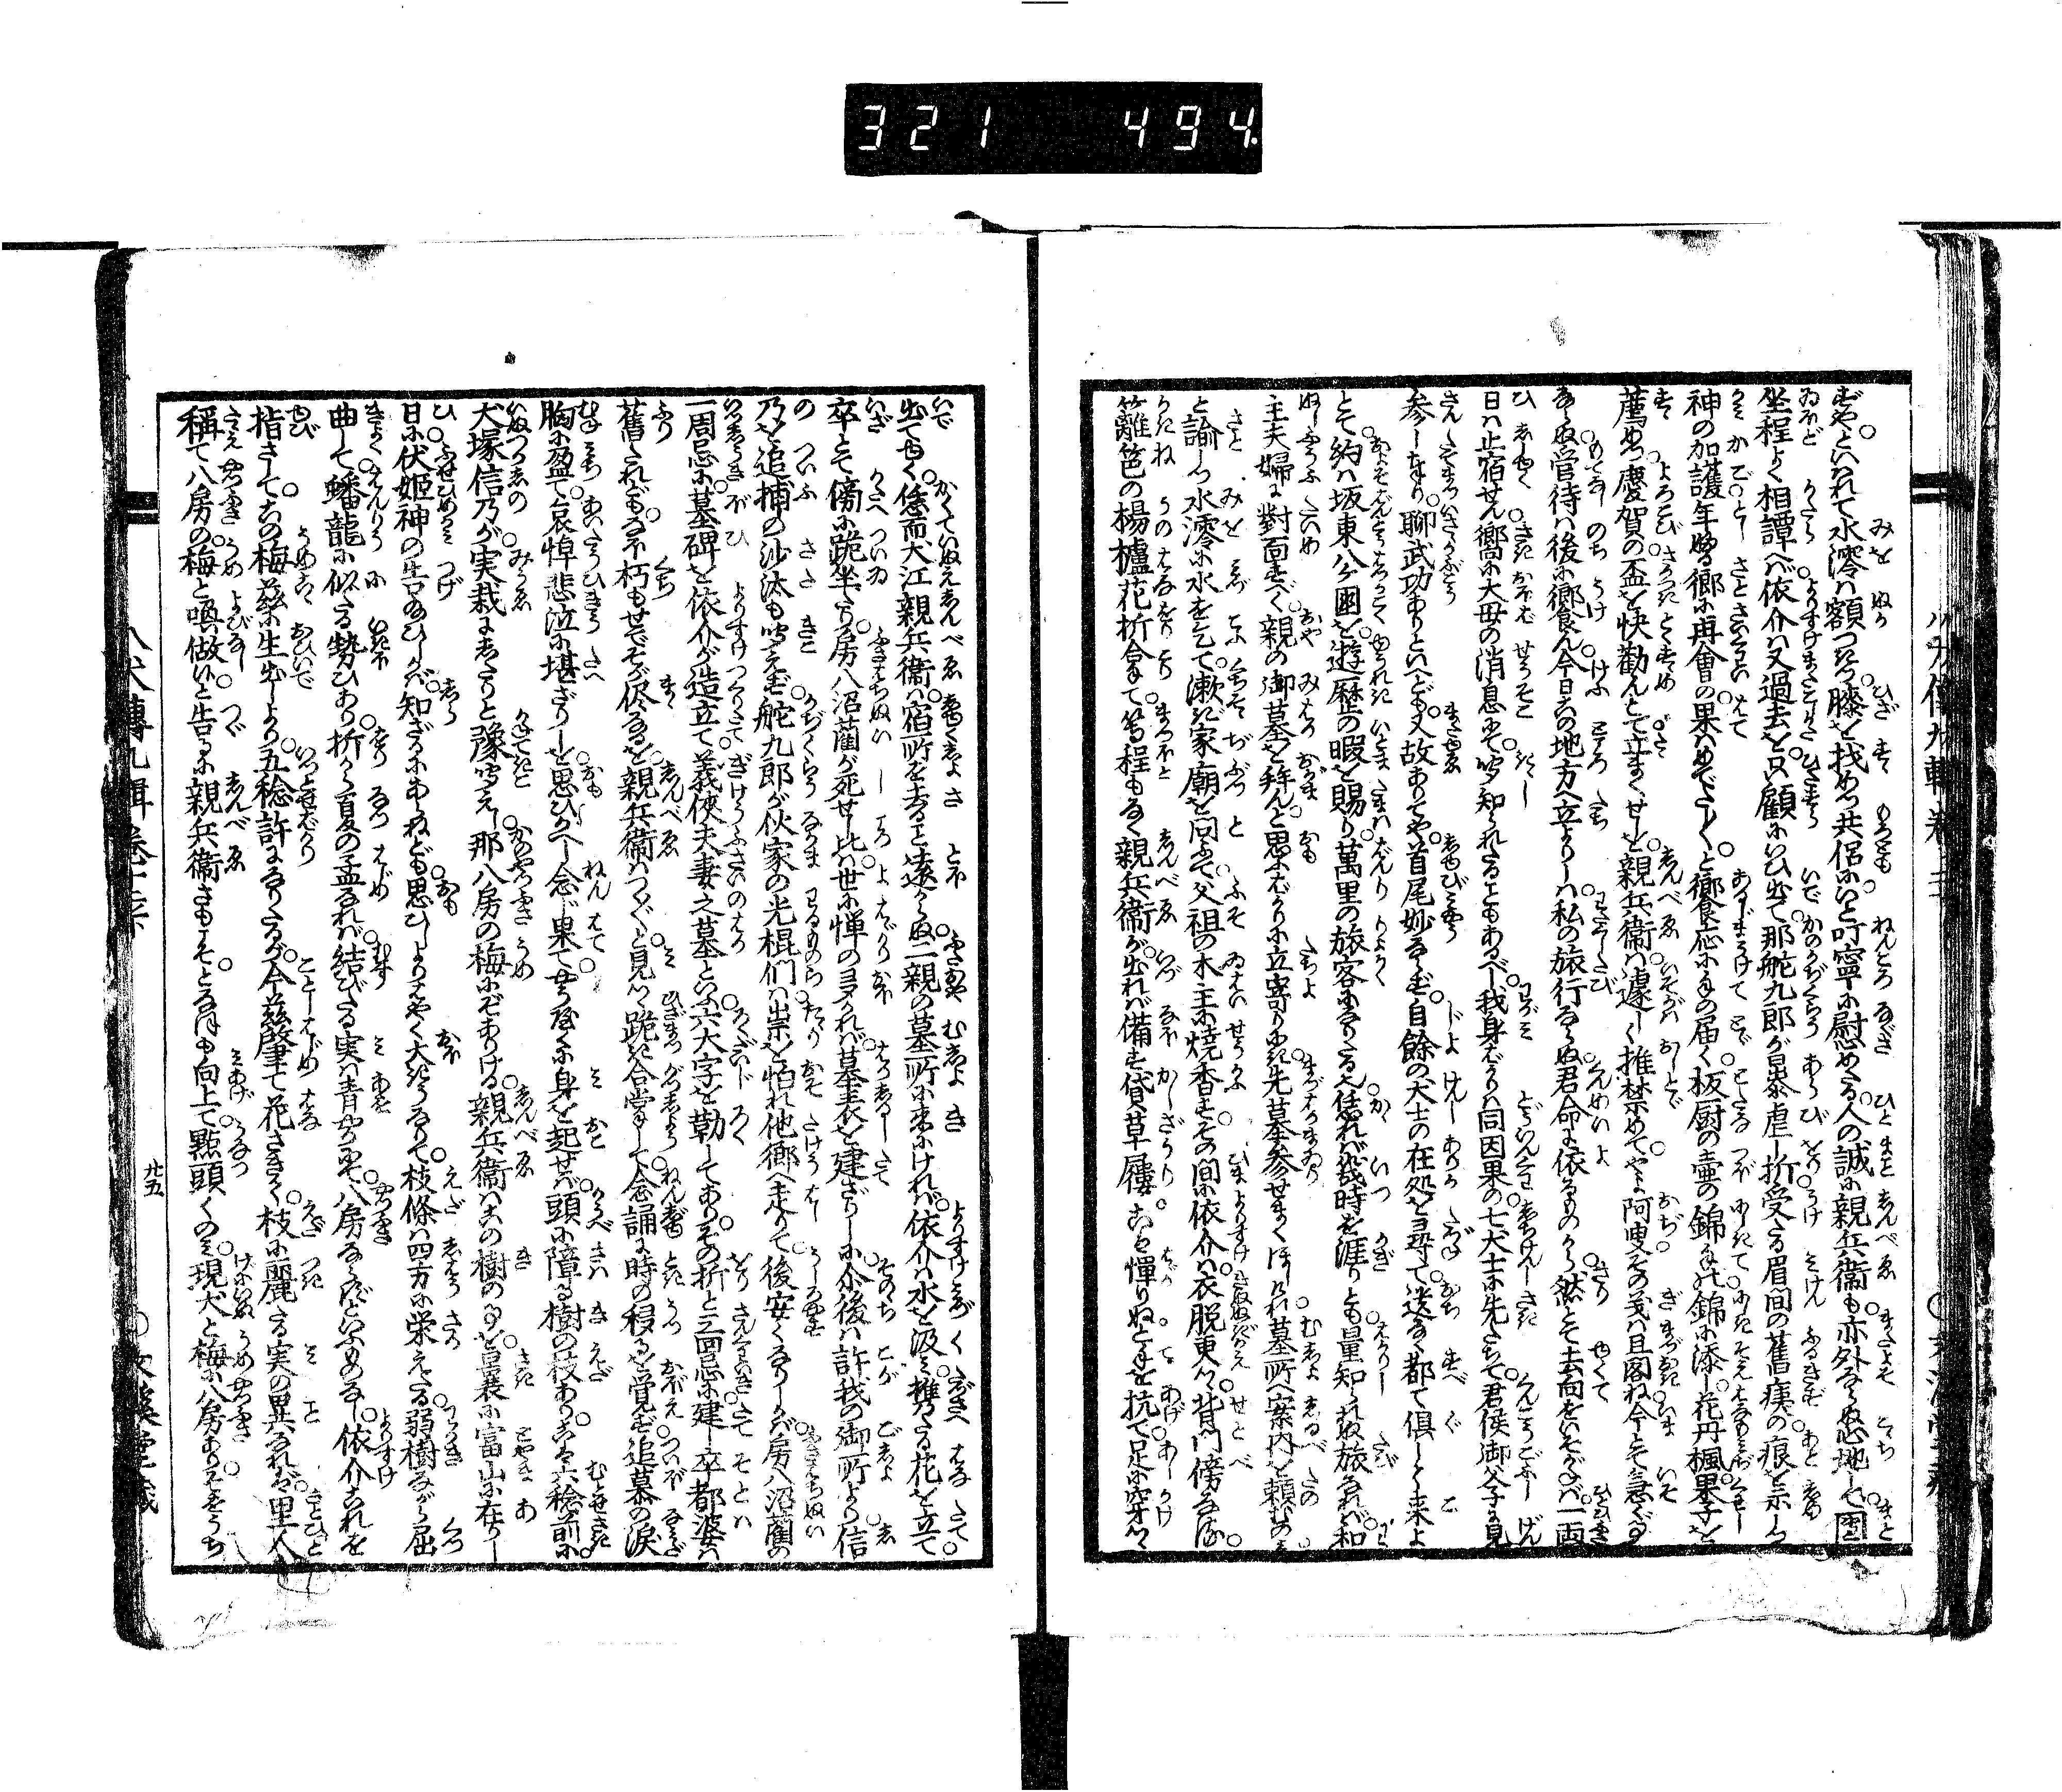 321 494.
ずや。といはれて水澪は額つき。膝を找めつ共侶に。いと叮寧に慰めたる。人の誠に親兵衛も。亦外ならぬ心地して。團
坐程よく相譚へば。依介は又過去を。只顧にいひ出て。那舵九郎が暴虐し折。受たる眉間の舊痍の。痕を示しつ
神の加護。年歴る郷に再會の。果はめでたし〳〵と。饗応に手の届く。板厨の壷の錦手に。錦に添し花丹楓。果子を
薦めつ慶賀の。盃を快勧んとて立まくせしを。親兵衛は遽しく推禁めて。やよ阿叟。その義は且閣ね。今こそ急ぐ
ならぬ。管待は後に郷食ん。今日この地方へ立よりしは。私の旅行ならぬ。君命に依るものから。然とて去向をいそがねば。一両
日は止宿せん。嚮に大母の消息にて。聞知られたることもあるべし。我身ばかりは同因果の。七犬士に先たちて。君侯御父子に見
参しまゐり。聊武功ありといへども。又故ありてや。首尾妙ならず。自餘の犬士の在処を尋て。送なく都て倶して来よ
とて。約は坂東八个國を。遊歴の暇を賜り。萬里の旅客になりたるに。恁れば幾時を涯りとも。量知られぬ旅なれば。和
主夫婦に對面すべく。親の御墓を拜んと。思ふばかりに立寄りにき。先墓参せまくほしけれ。墓所へ案内を頼むのみ。
と諭しつ。水澪に水を乞て。漱ぎ家廟を問ふて。父祖の木主に焼香す。その間に依介は。衣脱更つ。背門傍なる。
籬笆の楊櫨花折拿て。等程もなく親兵衛が。出れば備し貸草屨。こを憚りぬと手を抗て。足に穿つゝ
出てゆく。恁而犬江親兵衛は。宿所を去ること遠からぬ。二親の墓所に来にければ。依介は水を汲み。携たる花を立て。
卒とて傍に跪坐たり。房八沼藺が死せし比は。世に憚のヨリたれば。墓表を建ざりしに。介後は許我の御所より。信
乃を追捕の沙汰も聞えず。舵九郎が伙家の光棍們は。祟を怕れ他郷へ走りて。後安くなりしかば。房八沼藺の
一周忌に墓碑を。依介が造立て。義侠夫妻之墓といふ。六大字を勒してあり。その折と三回忌に。建し卒都婆は
舊たれども。なほ朽もせでぞ侭なるを。親兵衛はつく〴〵と見つ。跪き合掌して。念誦に時の移るを覚ず。追慕の涙
胸に盈て。哀悼悲泣に堪ざりしを。思ひかへし念じ果て。やうやくに身を起せば。頭に障る樹の枝あり。こは六稔前に。
犬塚信乃が実栽にしたりと。豫聞えし那八房の梅にぞありける。親兵衛はこの樹の事を。曩裏に富山に在りし
日に。伏姫神の告給ひしかば。知ざるにあらねども。思ひしよりもやく大きうなりて。枝條は四方に栄えたる。弱樹ながら屈
曲して。蟠龍に似たる勢ひあり。折から夏の孟なれば。結びたる実は青やかにて。八房ならずといふものなし。依介これを
指さして。この梅茲に生出しより。五稔許になりたるが。今茲肇て花さきつ。枝に麗たる実の異なれば。里人
稱て八房の。梅と喚做いと告るに。親兵衛さもこそとて。うち向上て點頭くのみ。現犬と梅に八房あり。そをうち
八犬傳九輯卷十二下
廿五